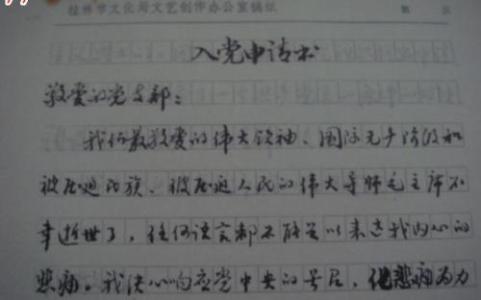 桂林市文化局文艺创作办公室稿纸 第 页
入党申请书
敬爱的党支部：
我们最敬爱的伟大领袖、国际无产阶级和
被压迫民族、被压迫人民的伟大导师毛主席不
幸逝世了，任何语言都不能够以表达我内心的
悲痛。我决心响应党中央的号召，化悲痛为力